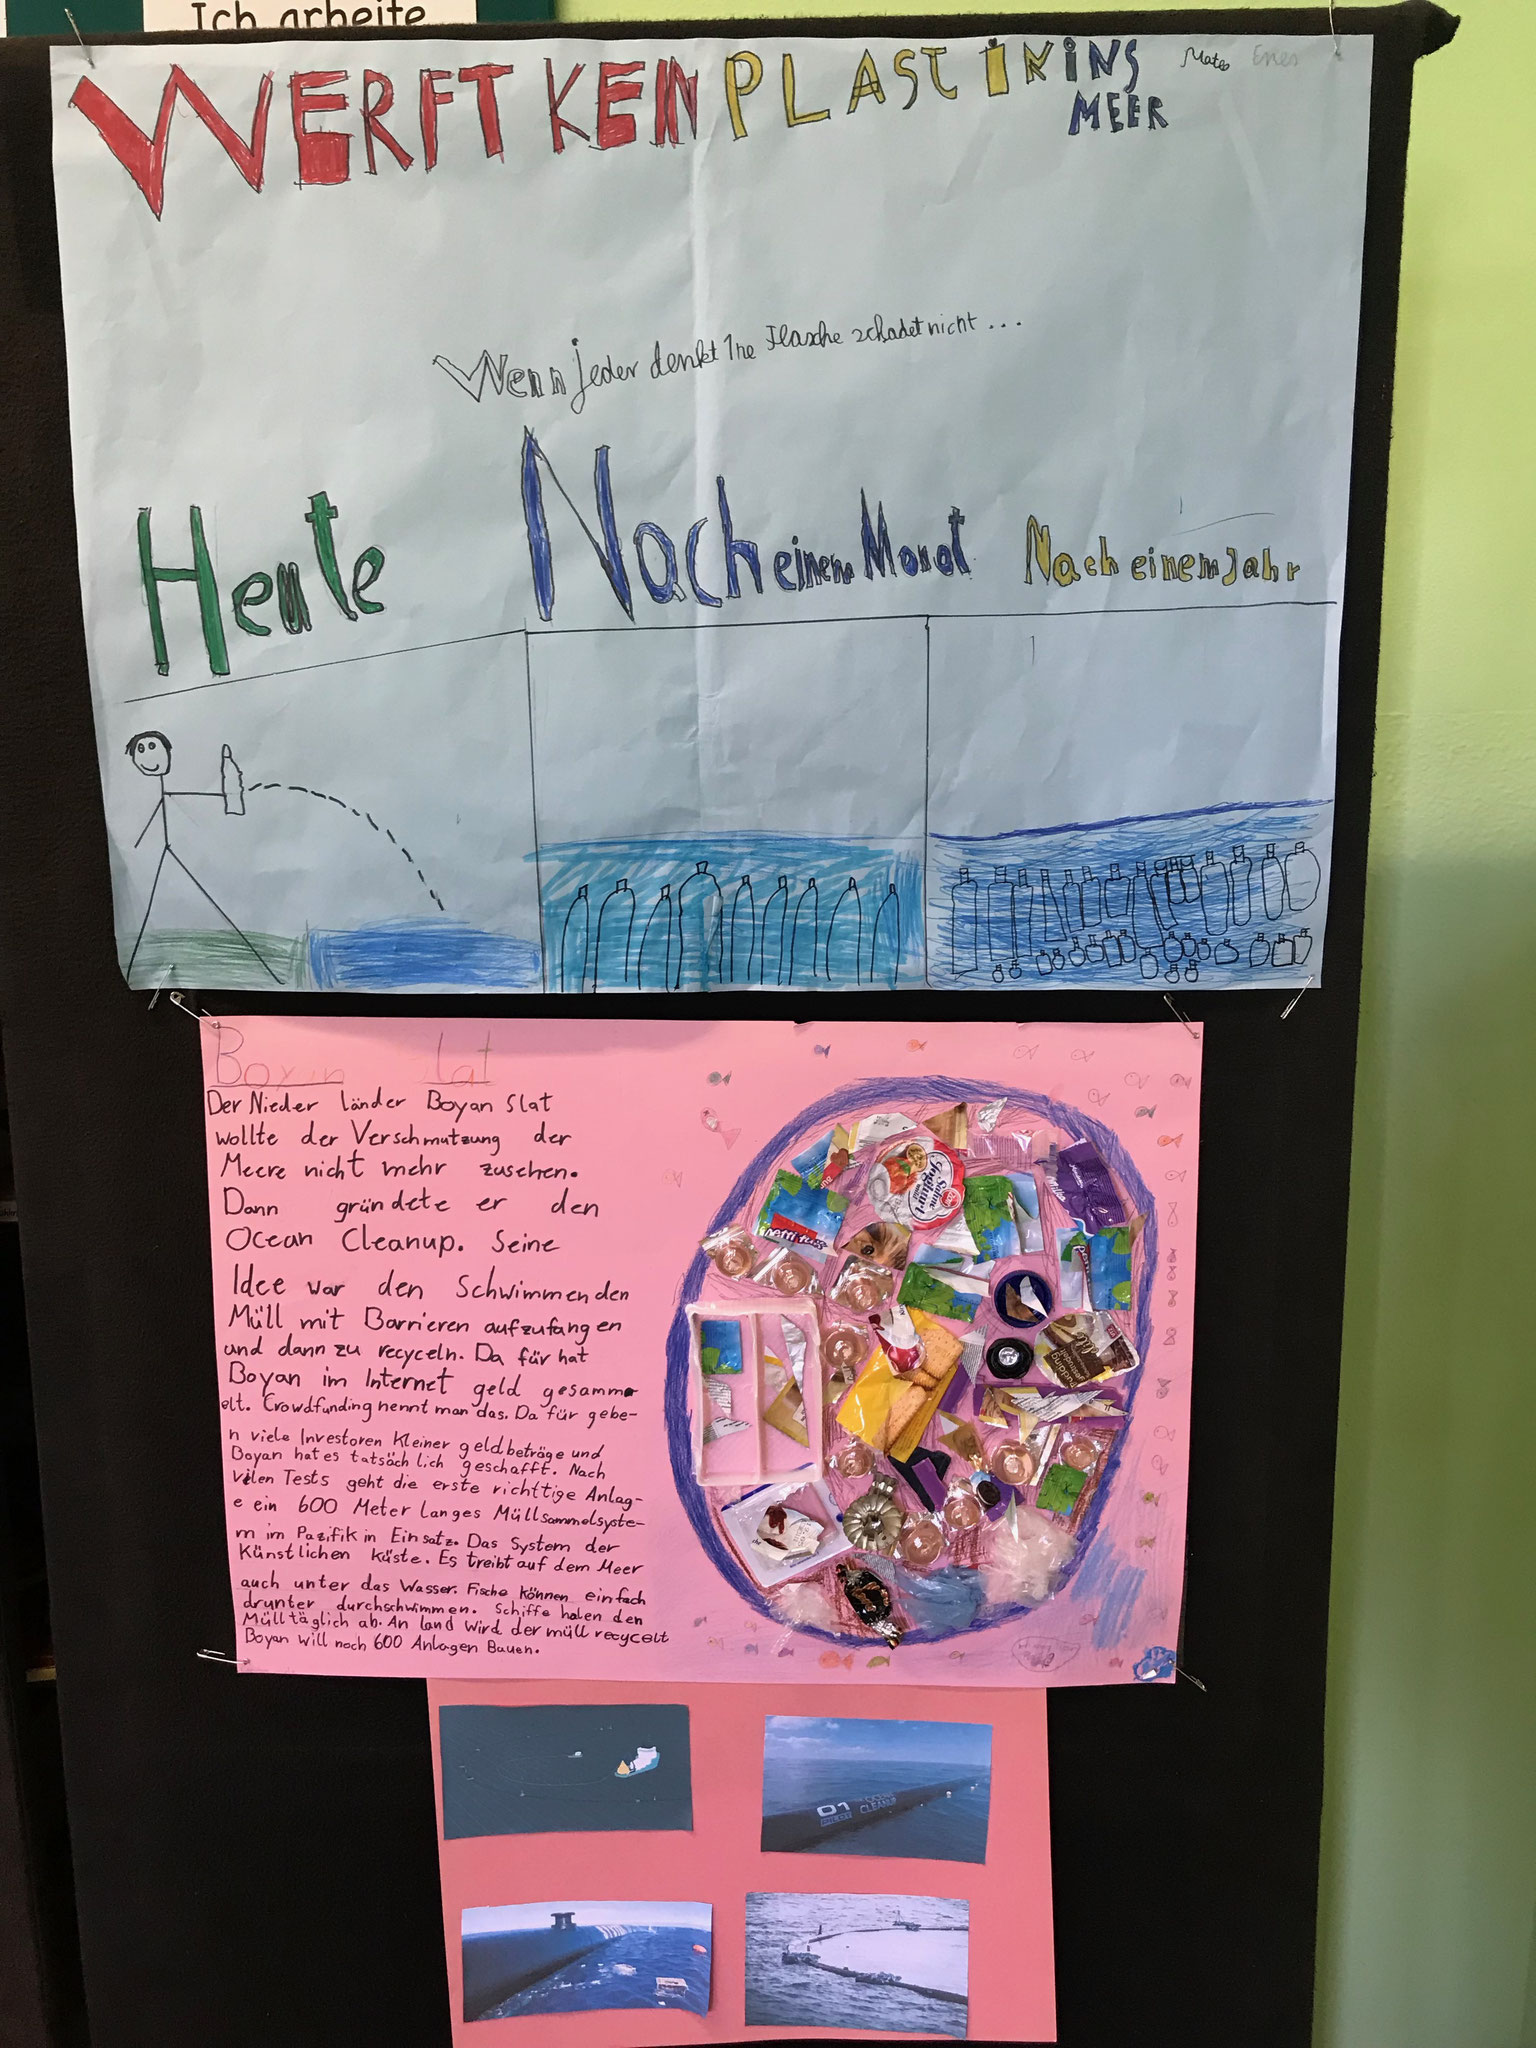 Ich arbeite
WERFT KEIN PLASTIK INS
MEER
Mateo Enes
Wenn jeder denkt 1ne Flasche schadet nicht...
Heute
Nach einem Monat
Nach einem Jahr
Boyan Slat
Der Nieder länder Boyan Slat
wollte der Verschmutzung der
Meere nicht mehr zusehen.
Dann gründete er den
Ocean Cleanup. Seine
Idee war den Schwimmenden
Müll mit Barrieren aufzufangen
und dann zu recyceln. Da für hat
Boyan im Internet geld gesamm
elt. Crowdfunding nennt man das. Da für gebe-
n viele Investoren Kleiner geldbeträge und
Boyan hat es tatsäch lich geschafft. Nach
vielen Tests geht die erste richttige Anlag-
e ein 600 Meter langes Müllsammelsyste-
m im Pazifik in Einsatz. Das System der
Künstlichen küste. Es treibt auf dem Meer
auch unter das Wasser. Fische können einfach
drunter durchschwimmen. Schiffe holen den
Müll täglich ab. An land wird der müll recycelt
Boyan will noch 600 Anlagen Bauen.
Sahne
Joghurt
Milka
Pudding
01
PILOT
CLEANUP